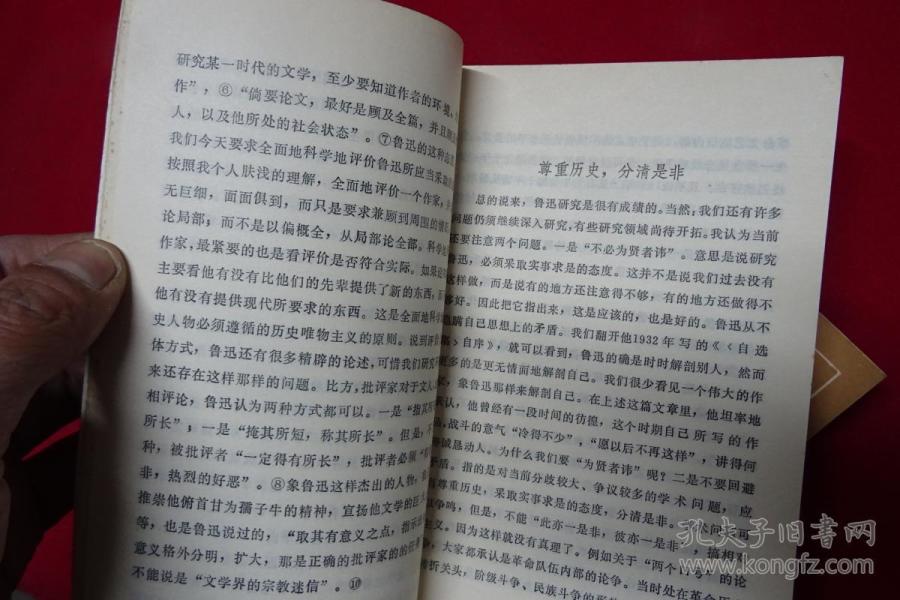 研究某一时代的文学，至少要知道作者的环境、
作”，⑥“倘要论文，最好是顾及全篇，并且
人，以及他所处的社会状态”。⑦鲁迅的这种态
我们今天要求全面地科学地评价鲁迅所应当采取
按照我个人肤浅的理解，全面地评价一个作家，
无巨细，面面俱到，而只是要求兼顾到周围的情
论局部；而不是以偏概全，从局部论全部。科学地
作家，最紧要的也是看评价是否符合实际。如果
主要看他有没有比他们的先辈提供了新的东西，而
他有没有提供现代所要求的东西。这是全面地科学
史人物必须遵循的历史唯物主义的原则。说到评
体方式，鲁迅还有很多精辟的论述，可惜我们研究
来还存在这样那样的问题。比方，批评家对于文人
相评论，鲁迅认为两种方式都可以。一是“指其所
所长”；一是“掩其所短，称其所长”。但是，不
种，被批评者“一定得有所长”，批评者必须“
非，热烈的好恶”。⑧象鲁迅这样杰出的人物，
推崇他俯首甘为孺子牛的精神，宣扬他文学的巨
等，也是鲁迅说过的，“取其有意义之点，指示出
意义格外分明，扩大，那是正确的批评家的任务
不能说是“文学界的宗教迷信”。⑩
尊重历史，分清是非
总的说来，鲁迅研究是很有成绩的。当然，我们还有许多
问题仍须继续深入研究，有些研究领域尚待开拓。我认为当前
还要注意两个问题。一是“不必为贤者讳”。意思是说研究
鲁迅，必须采取实事求是的态度。这并不是说我们过去没有
这样做，而是说有的地方还注意得不够，有的地方还做得不
多好。因此把它指出来，这是应该的，也是好的。鲁迅从不
隐瞒自己思想上的矛盾。我们翻开他1932年写的《〈自选
集〉自序》，就可以看到，鲁迅的确是时时解剖别人，然而
更多的是更无情面地解剖自己。我们很少看见一个伟大的作
象鲁迅那样来解剖自己。在上述这篇文章里，他坦率地
承认，他曾经有一段时间的彷徨，这个时期自己所写的作
战斗的意气“冷得不少”，“愿以后不再这样”，讲得何
诚恳动人。为什么我们要“为贤者讳”呢？二是不要回避
矛盾。指的是对当前分歧较大、争议较多的学术问题，应
尊重历史，采取实事求是的态度，分清是非。学术问题可
争鸣，但是，不能“此亦一是非，彼亦一是非”，搞相对
主义。因为这样就没有真理了。例如关于“两个口号”的论
大家都承认是革命队伍内部的论争。当时处在革命历
转折关头，阶级斗争、民族斗争的形势
孔夫子旧书网
www.kongfz.com